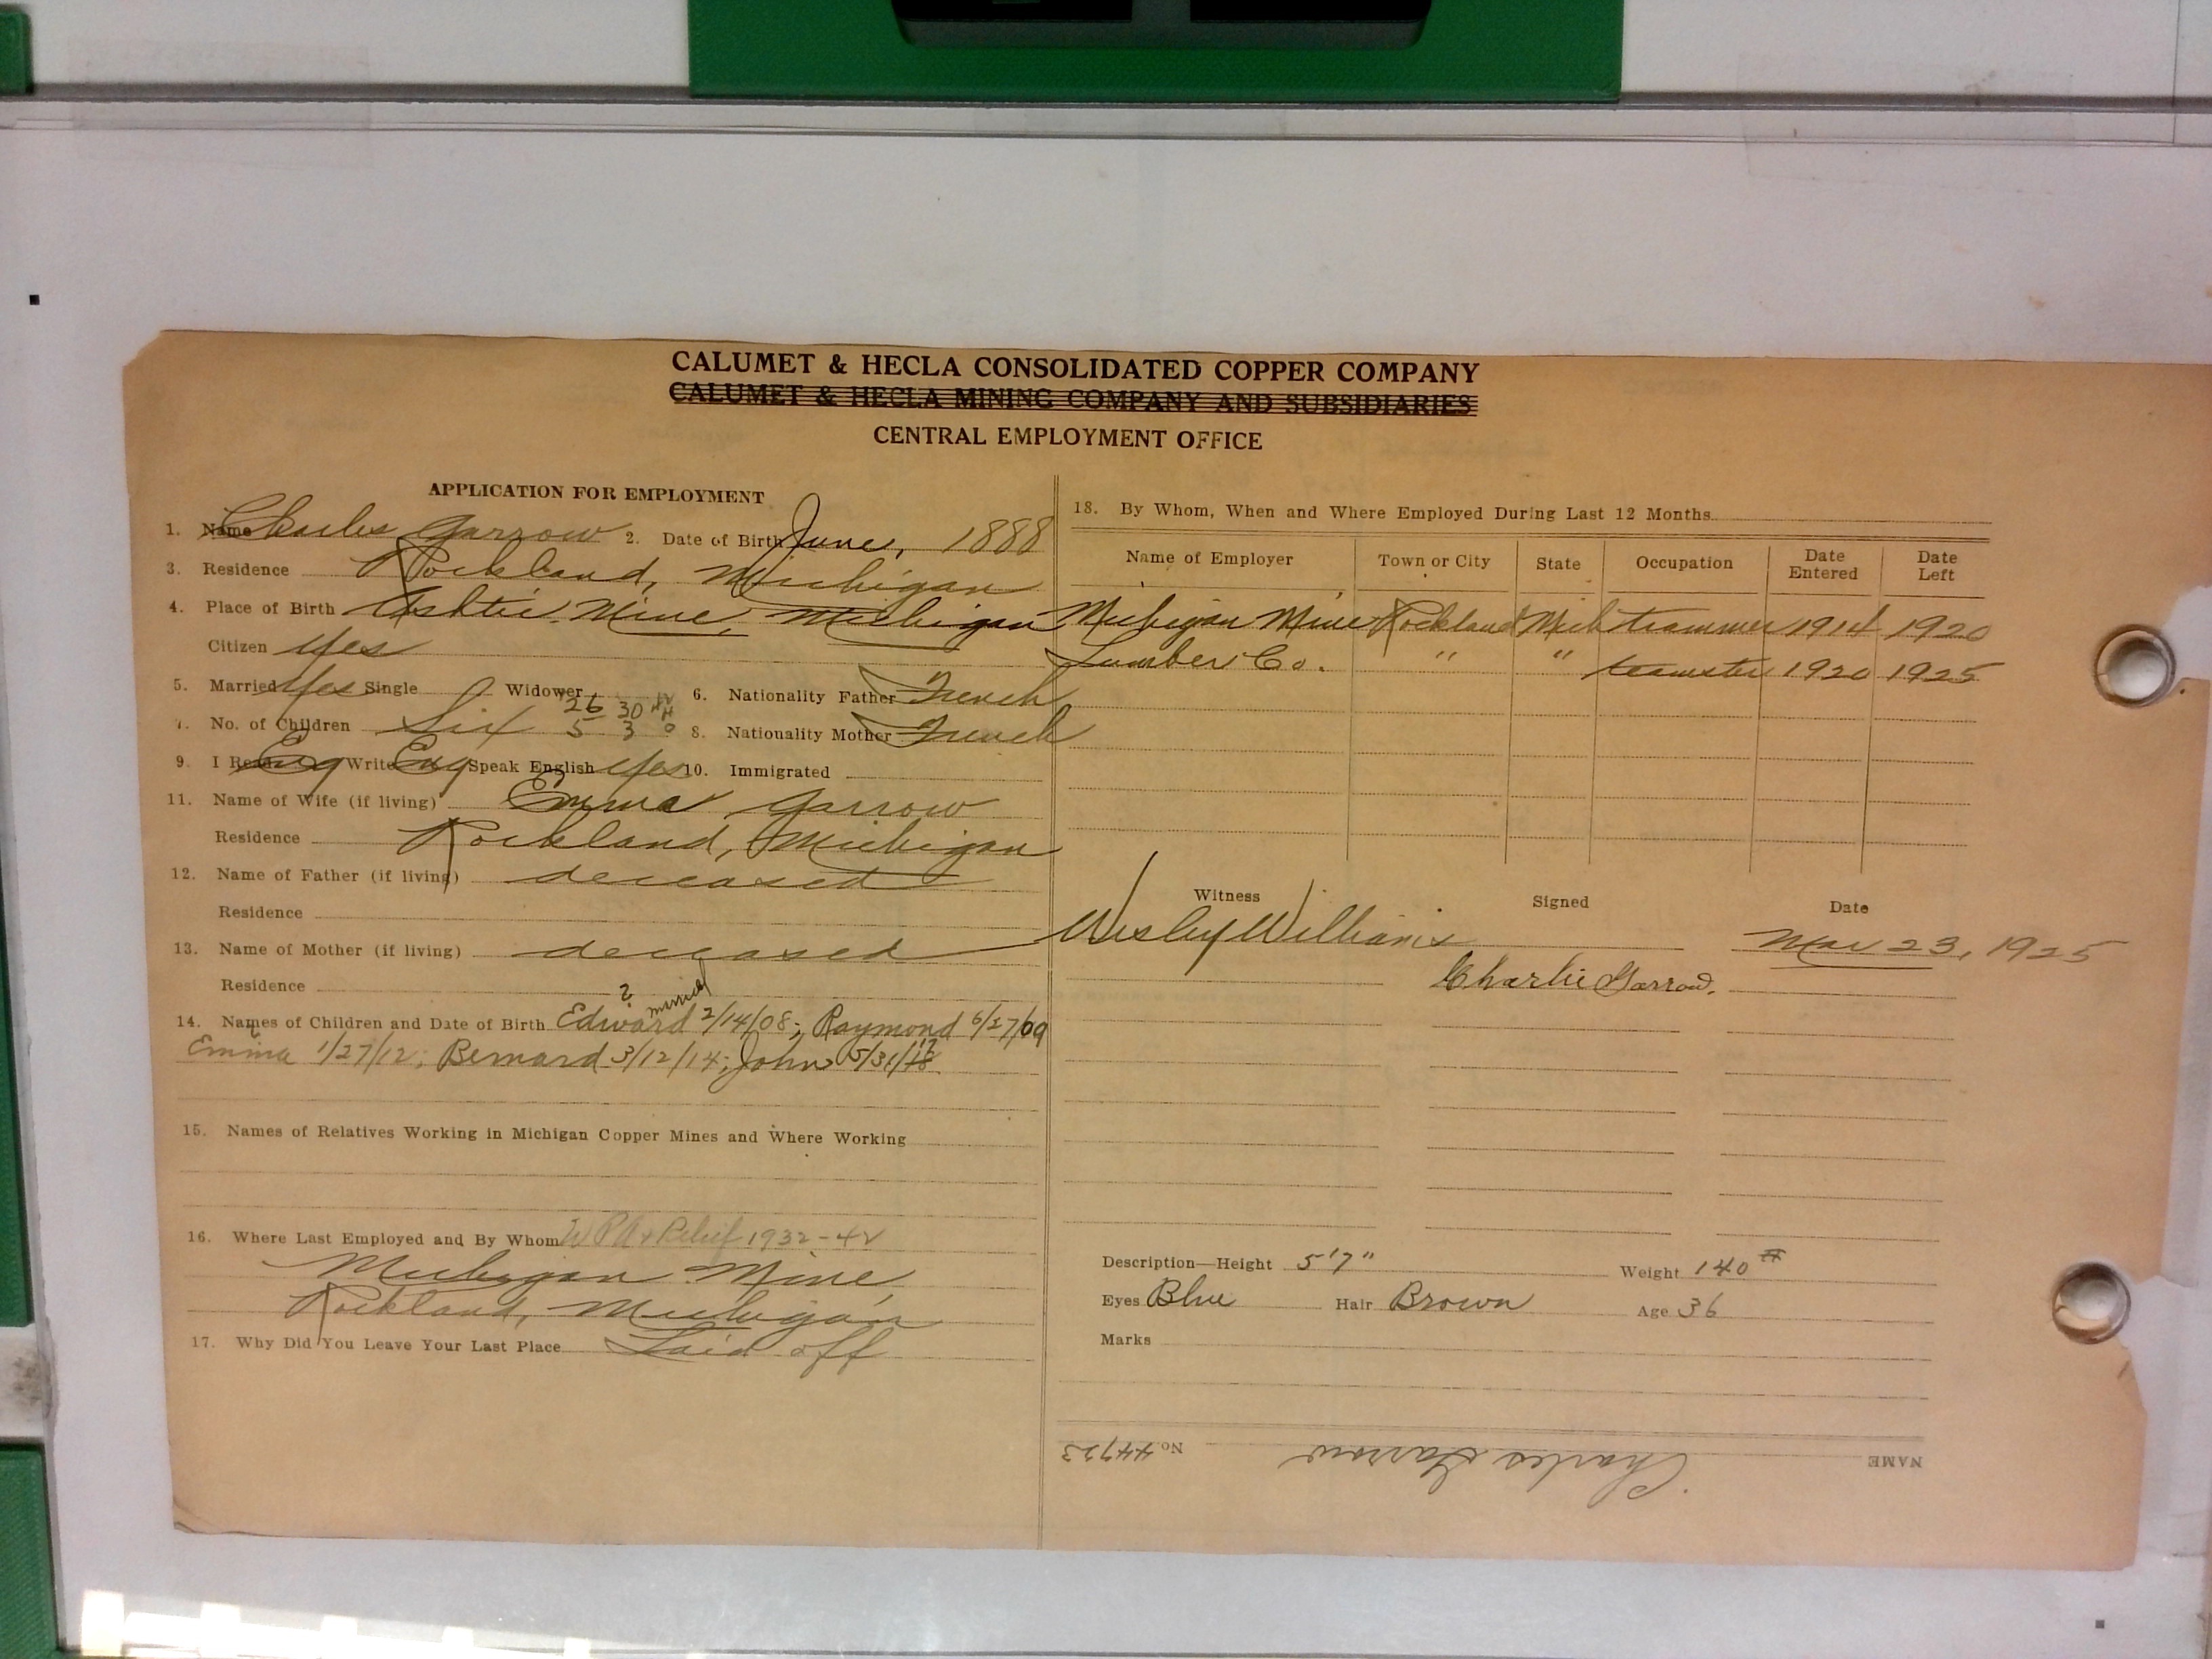 CALUMET & HECLA CONSOLIDATED COPPER COMPANY
CALUMET & HECLA MINING COMPANY AND SUBSIDIARIES
CENTRAL EMPLOYMENT OFFICE
APPLICATION FOR EMPLOYMENT
1. Name Charles Garrow 2. Date of Birth June, 1888
3. Residence Rockland, Michigan
4. Place of Birth Mine, Michigan
Citizen Yes
5. Married Yes Single Widower 6. Nationality Father French
26 30 42
7. No. of Children Six 5 3 0 8. Nationality Mother French
9. I Read Eng Write Eng Speak English Yes 10. Immigrated
11. Name of Wife (if living) Emma Garrow
Residence Rockland, Michigan
12. Name of Father (if living) deceased
Residence
13. Name of Mother (if living) deceased
Residence
14. Names of Children and Date of Birth Edward 2/14/08; Raymond 6/27/09
Emma 1/27/12; Bernard 3/12/14; John 5/31/18
15. Names of Relatives Working in Michigan Copper Mines and Where Working
16. Where Last Employed and By Whom WPA & Relief 1932-42
Michigan Mine,
Rockland, Michigan
17. Why Did You Leave Your Last Place Laid off
18. By Whom, When and Where Employed During Last 12 Months
Name of Employer Town or City State Occupation Date Entered Date Left
Michigan Mine Rockland Mich trammer 1914 1920
Lumber Co. " " teamster 1920 1925
Witness Signed Date
Wesley Williams Mar 23, 1925
Charlie Garrow.
Description—Height 5'7" Weight 140 #
Eyes Blue Hair Brown Age 36
Marks
NAME Charles Garrow No. 44723